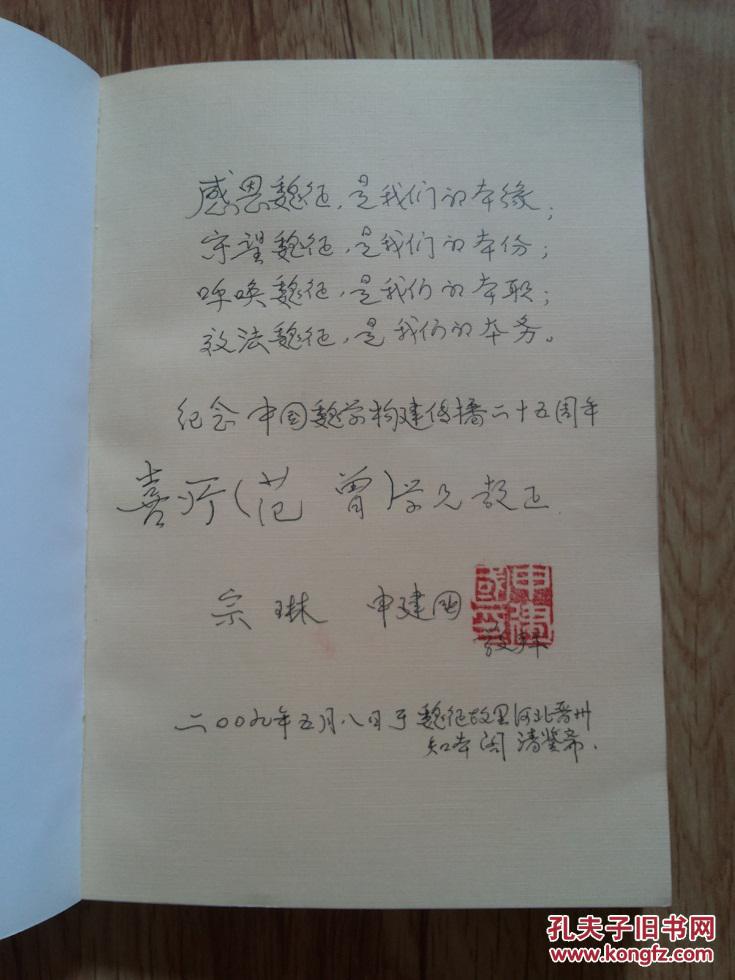 感恩魏征,是我们的本缘;
守望魏征,是我们的本份;
呼唤魏征,是我们的本职;
效法魏征,是我们的本务。
纪念中国魏学构建传播二十五周年
喜所(范曾)学兄教正
宗琳 申建国
申建國印
敬拜
二〇〇九年五月八日于魏征故里河北晋州
知本阁 清鉴斋.
孔夫子旧书网
www.kongfz.com